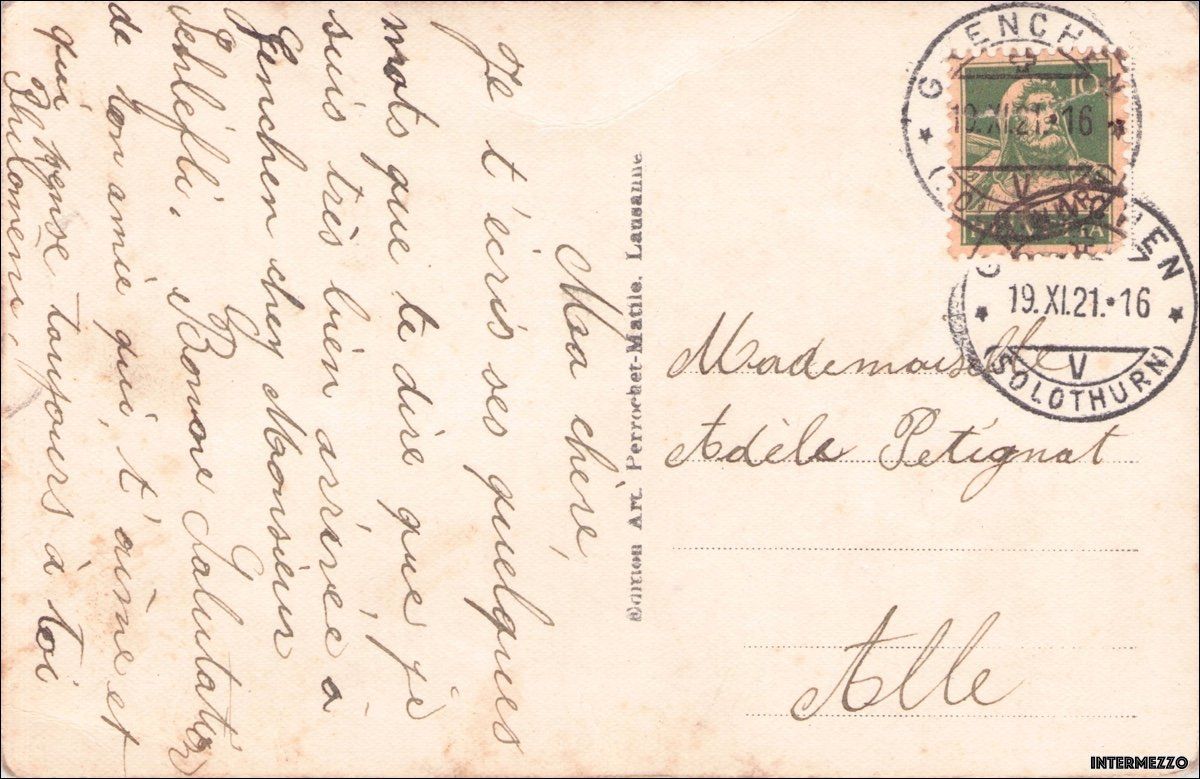 Ma chère,
Je t'écris ses quelques
mots que te dire que je
suis très bien arrivée à
Grenchen chez Monsieur
Schlefli. Bonne Salutation
de ton amie qui, t'aime et
qui pense toujours à toi
Philomène
Edition Art. Perrochet-Matile, Lausanne
GRENCHEN
19.XI.21.*16
V
(SOLOTHURN)
10
HELVETIA
GRENCHEN
19.XI.21.*16
V
(SOLOTHURN)
Mademoiselle
Adèle Petignat
Alle
INTERMEZZO